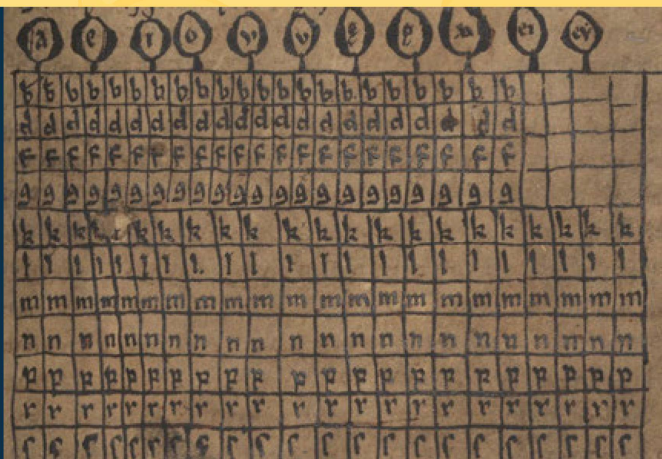 a e ı o w v ei
b b b b b b b b b b b b b b b b b b b b b b
d d d d d d d d d d d d d d d d d d d d d
f f f f f f f f f f f f f f f f f f f f f f
g g g g g g g g g g g g g g g g g g g g g g
k k k k k k k k k k k k k k k k k k k k k
l l l l l l l l l l l l l l l l l l l l l l
m m m m m m m m m m m m m m m m m m m m m m
n n n n n n n n n n n n n n n n n n n n n n
p p p p p p p p p p p p p p p p p p p p p p
r r r r r r r r r r r r r r r r r r r r r r
ſ ſ ſ ſ ſ ſ ſ ſ ſ ſ ſ ſ ſ ſ ſ ſ ſ ſ ſ ſ ſ ſ